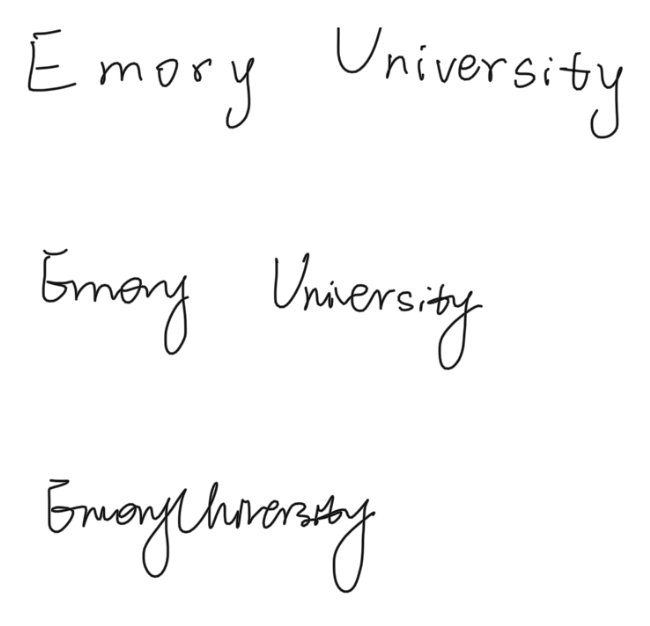 Emory University
Emory University
EmoryUniversity